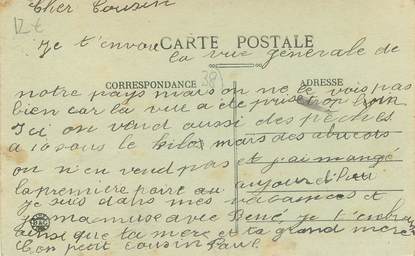 Cher Cousin
12 €
Je t'envoie CARTE POSTALE
la vue générale de
CORRESPONDANCE 38 ADRESSE
notre pays mais on ne le vois pas
bien car la vue a été prise trop loin
Ici on vend aussi des pêches
a 10 sous le kilo mais des abricots
on n'en vend pas et j'ai mangé
la première poire aujourd'hui
je suis dans mes vacances et
je m'amuse avec Bené je t'embra
ainsi que ta mère et ta grand mère
ton petit cousin Paul